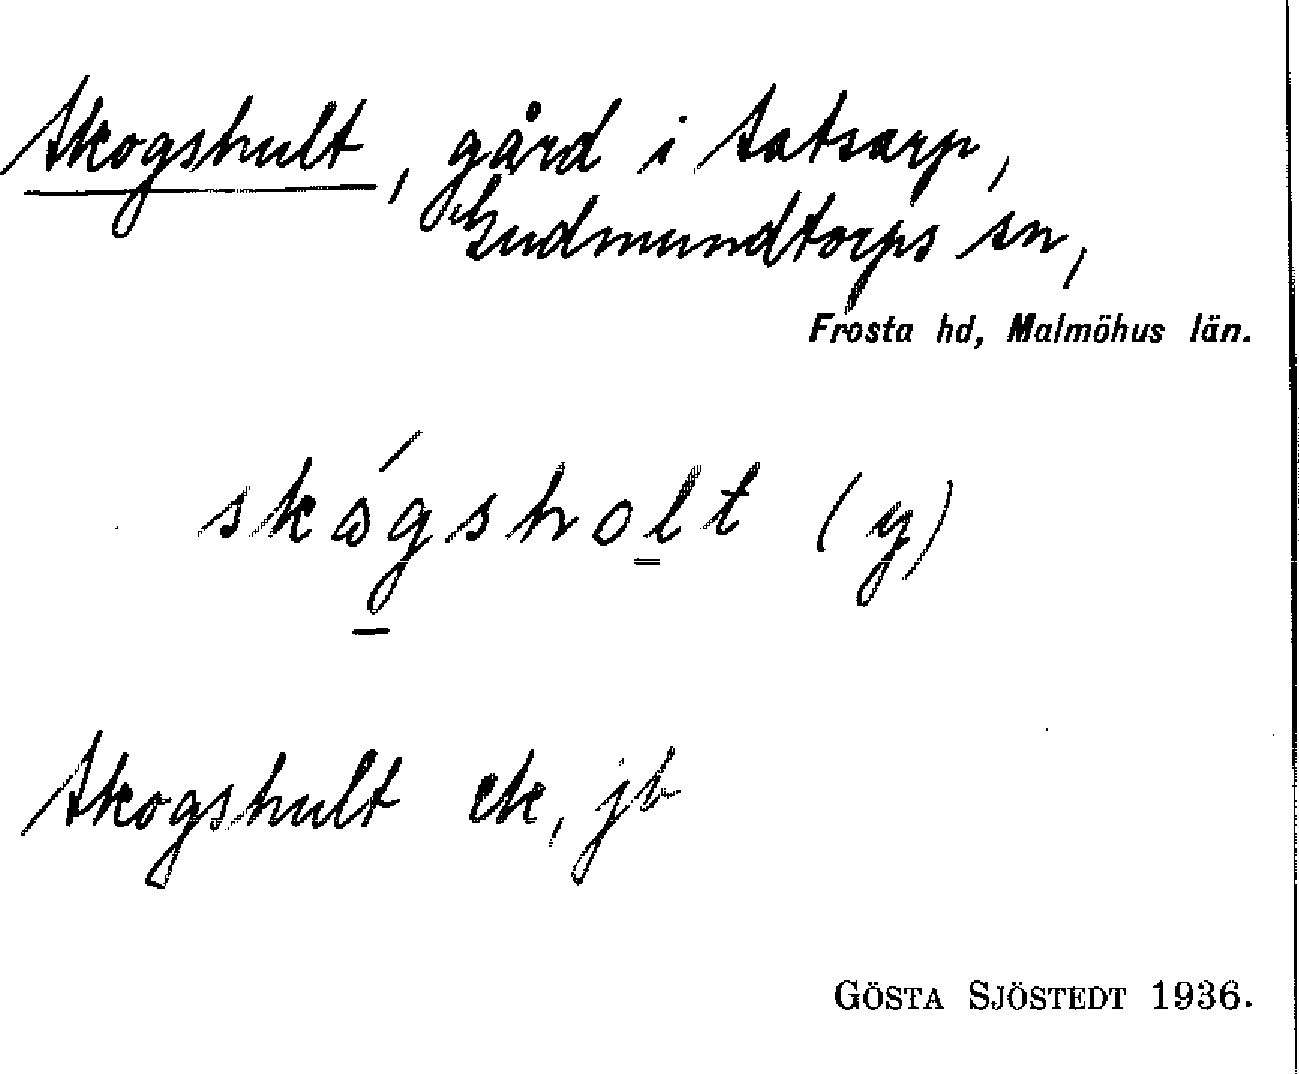 Skogshult, gård i Satsarp,
Gudmundtorps sn,
Frosta hd, Malmöhus län.
skógsholt (y)
Skogshult ek, jb
GÖSTA SJÖSTEDT 1936.